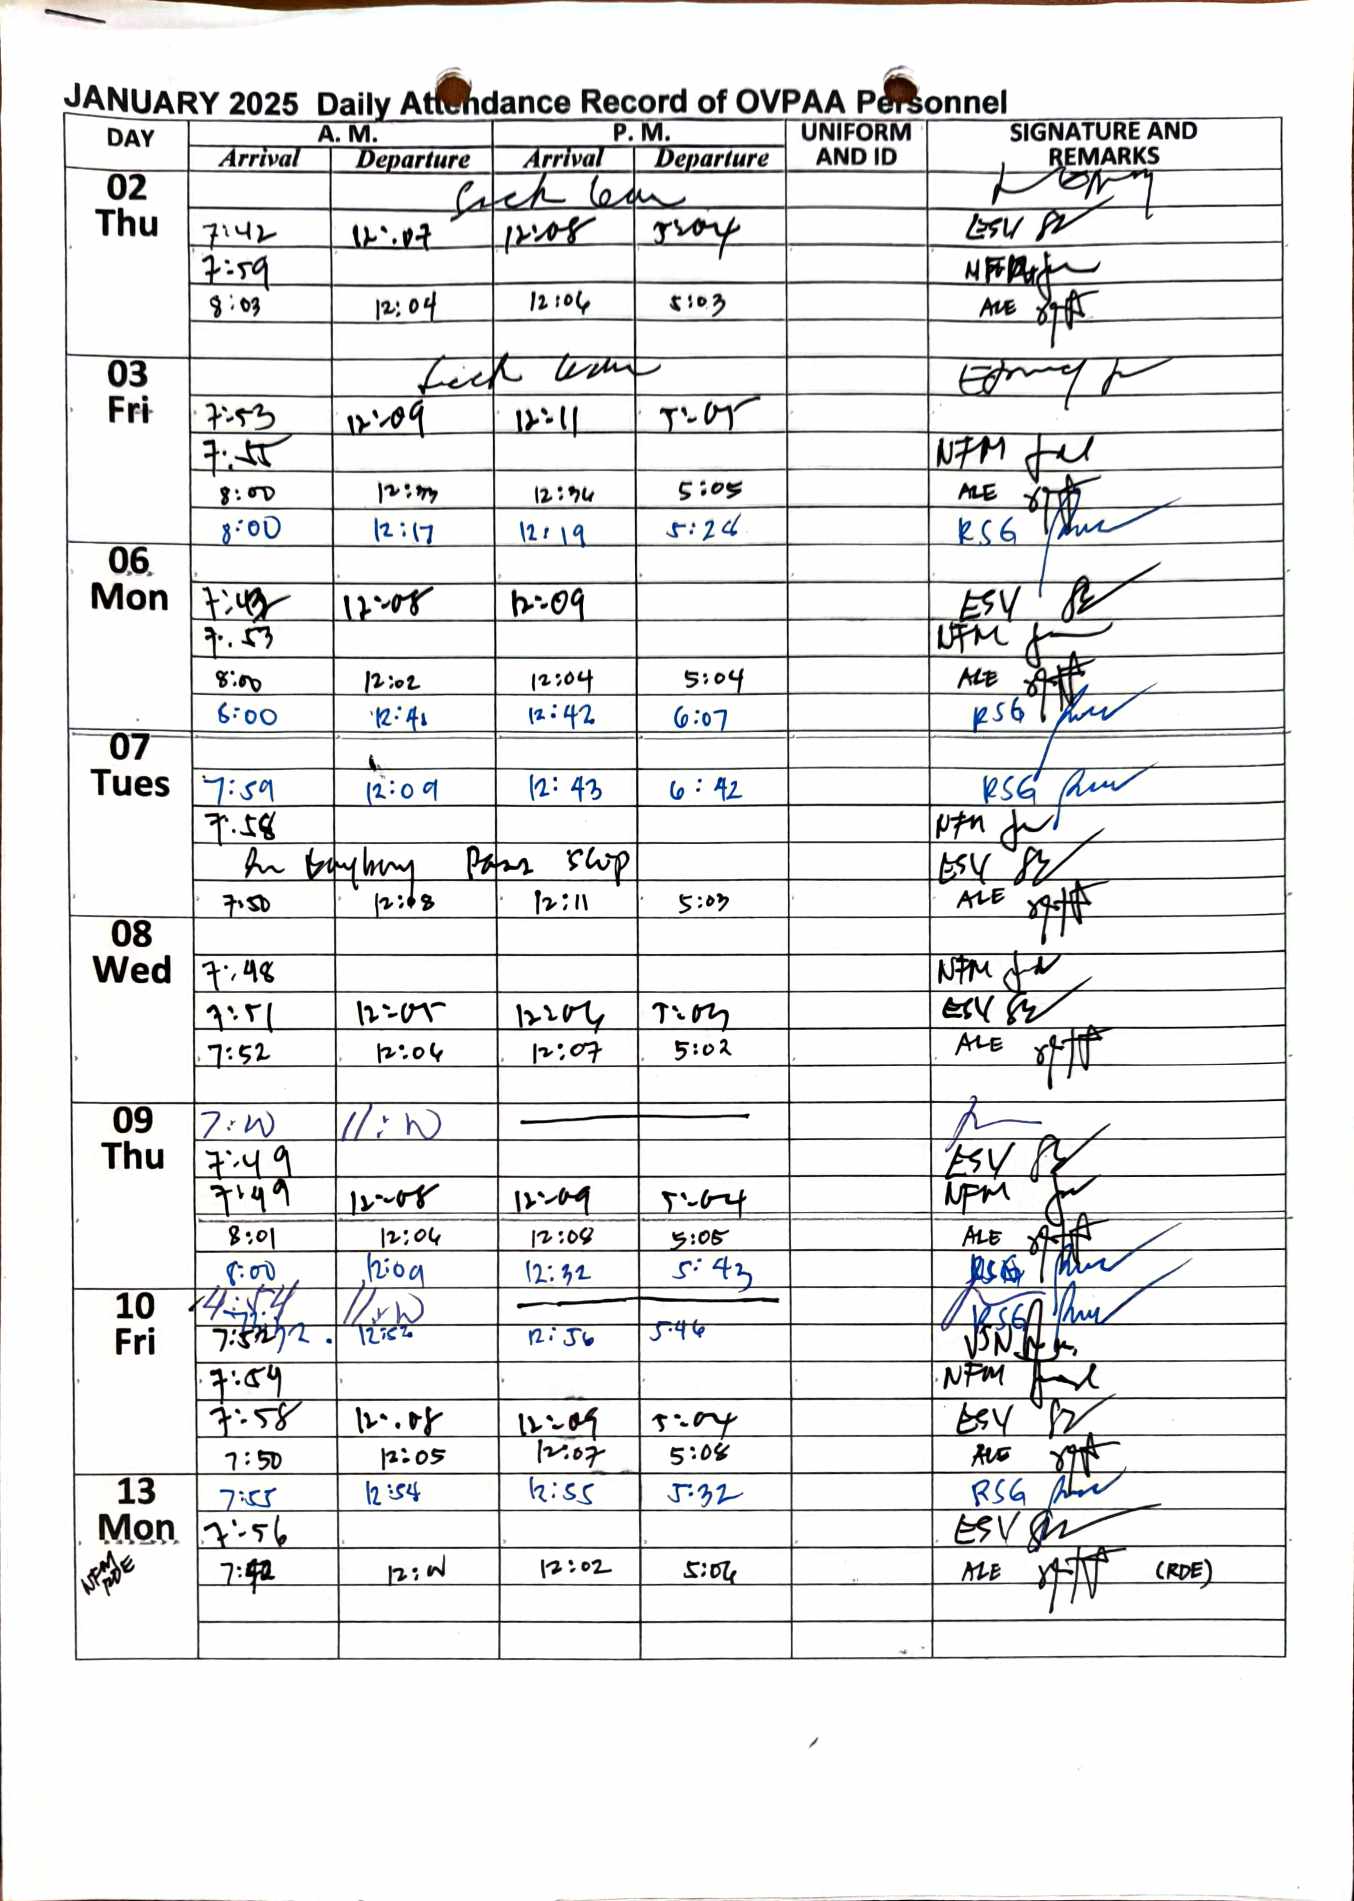 JANUARY 2025 Daily Attendance Record of OVPAA Personnel
DAY A. M. P. M. UNIFORM AND ID SIGNATURE AND REMARKS
Arrival Departure Arrival Departure
02 Thu
Sick leave
7:42 12:07 12:08 5:04 ESV
7:59 NFM
8:03 12:04 12:06 5:03 ALE
03 Fri
Sick leave
7:53 12:09 12:11 5:05
7:55 NFM
8:00 12:33 12:34 5:05 ALE
8:00 12:17 12:19 5:26 RSG
06 Mon
12:08 12:09 ESV
7:53 NFM
8:00 12:02 12:04 5:04 ALE
12:41 12:42 6:07 RSG
07 Tues
7:59 12:09 12:43 6:42 RSG
7:58 NFM
Pass slip ESV
7:50 12:11 5:03 ALE
08 Wed
7:48 NFM
7:51 12:05 12:06 5:03 ESV
7:52 12:06 12:07 5:02 ALE
09 Thu
7:49 ESV
7:49 12:08 12:09 5:04 NFM
8:01 12:06 12:08 5:05 ALE
8:00 12:09 12:32 5:43 RSG
10 Fri
RSG
7:52 12:52 12:56 5:46 VSN
7:54 NFM
7:58 12:08 12:09 5:04 ESV
7:50 12:05 12:07 5:08 ALE
13 Mon
7:55 12:54 12:55 5:32 RSG
7:56 ESV
NFM RDE
12:02 5:06 ALE (RDE)